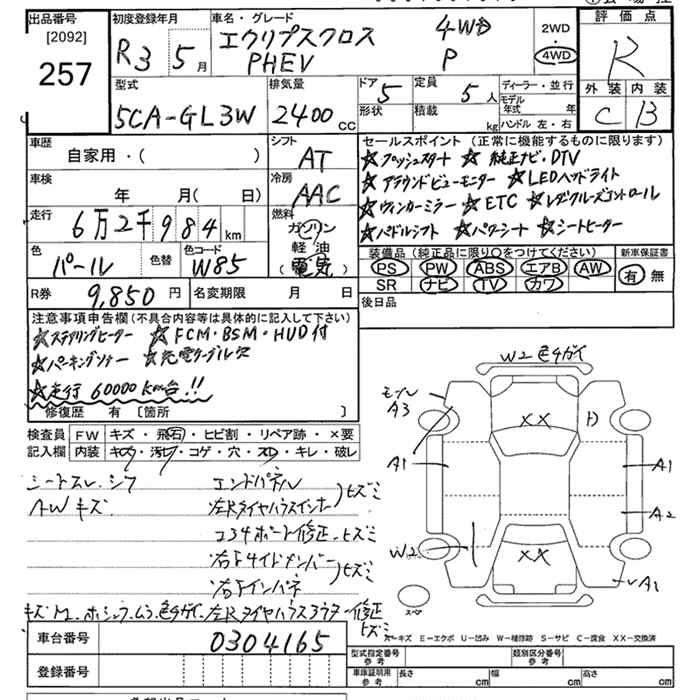 出品番号 初度登録年月 車名・グレード 2WD 評価点
[2092] R3 5月 エクリプスクロス 4WD 4WD R
257 PHEV P 外装 内装
型式 排気量 ドア 5 定員 5人 ディーラー・並行 C B
5CA-GL3W 2400cc 形状 積載 kg モデル年式 年
ハンドル 左・右
車歴 シフト セールスポイント (正常に機能するものに限ります)
自家用・( ) AT ☆プッシュスタート ☆純正ナビ・DTV
車検 冷房 ☆アラウンドビューモニター ☆LEDヘッドライト
年 月( 日) AAC ☆ウィンカーミラー ☆ETC ☆レーダクルーズコントロール
走行 燃料 ☆パドルシフト ☆パワーシート ☆シートヒーター
6万2千984km ガソリン
色 色替 色コード 軽油 装備品 (純正品に限り○をつけてください) 新車保証書
パール W85 (電気) PS PW ABS エアB AW 有 無
SR ナビ TV カワ
R券 9,850円 名変期限 月 日 後日品
注意事項申告欄(不具合内容等は具体的に記入して下さい)
☆ステアリングヒーター ☆FCM・BSM・HUD付
☆パーキングソナー ☆充電ケーブル欠
☆走行60000km台!!
修復歴 有 [箇所 ]
検査員 FW キズ・飛石・ヒビ割・リペア跡・×要
記入欄 内装 キズ・汚レ・コゲ・穴・スレ・キレ・破レ
シートスレ、シワ エンドパネル
AWキズ 左Rタイヤハウスインナー ヒズミ
コ34ポート修正、ヒズミ
右Fサイドメンバー
右Fインパネ ヒズミ
左Rタイヤハウスアウター修正
ヒズミ
W2 色チガイ
モール
A3
XX
A1
A1
A2
W2
XX
A1
スペア
A-キズ E-エクボ U-凹み W-補修跡 S-サビ C-腐食 XX-交換済
車台番号 0304165
登録番号
型式指定番号 参考 類別区分番号 参考
車庫証明用 参考 長さ cm 幅 cm 高さ cm